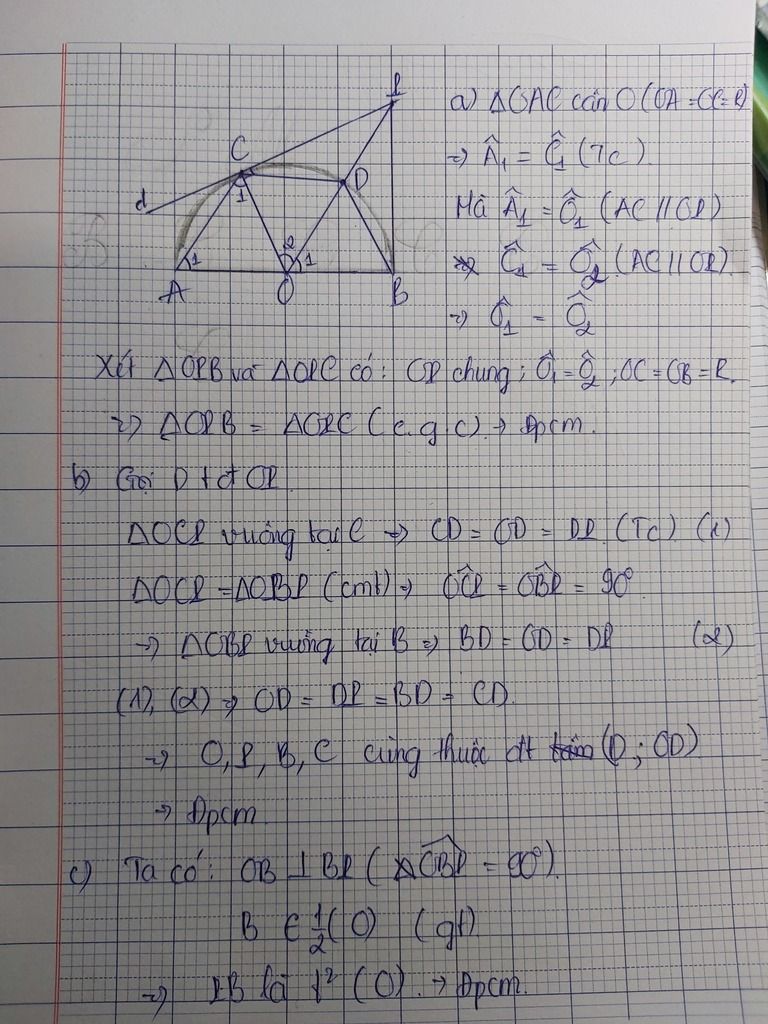 P
C
D
d
1
2
1
1
A
O
B
a) ΔOAC cân O (OA = OC = R)
=> Â₁ = Ĉ₁ (Tc).
Mà Â₁ = Ô₁ (AC // OP)
Ĉ₁ = Ô₂ (AC // OP).
=> Ô₁ = Ô₂
Xét ΔOPB và ΔOPC có: OP chung; Ô₁ = Ô₂; OC = OB = R.
=> ΔOPB = ΔOPC (c.g.c). → Đpcm.
b) Gọi D t đ OP.
ΔOCP vuông tại C => CD = OD = DP (Tc) (1)
ΔOCP = ΔOBP (cmt) => OĈP = OB̂P = 90°
→ ΔOBP vuông tại B => BD = OD = DP (2)
(1), (2) => OD = DP = BD = CD.
=> O, P, B, C cùng thuộc đt (D; OD)
=> Đpcm
c) Ta có: OB ⊥ BP (OB̂P = 90°).
B ∈ ½(O) (gt)
=> PB là t² (O). → Đpcm.